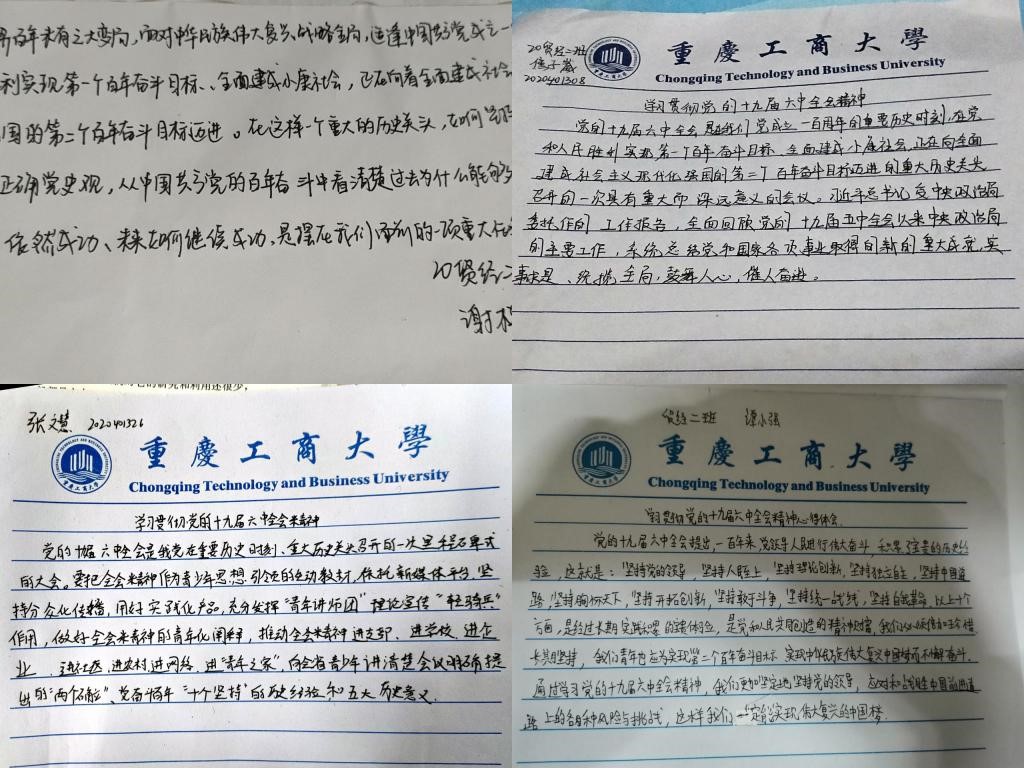 界百年未有之大变局，面对中华民族伟大复兴战略全局，适逢中国共产党成立一
利实现第一个百年奋斗目标、全面建成小康社会，正在向着全面建成社会
国的第二个百年奋斗目标迈进。在这样一个重大的历史关头，如何
正确党史观，从中国共产党的百年奋斗中看清楚过去为什么能够
依然成功、未来如何继续成功，是摆在我们面前的一项重大
20贸经二
谢
20贸经二班
2020401308
重慶工商大學
Chongqing Technology and Business University
学习贯彻党的十九届六中全会精神
党的十九届六中全会是我们党成立一百周年的重要历史时刻，在党
和人民胜利实现第一个百年奋斗目标、全面建成小康社会，正在向全面
建成社会主义现代化强国的第二个百年奋斗目标迈进的重大历史关头
召开的一次具有重大而深远意义的会议。习近平总书记受中央政治局
委托作的工作报告，全面回顾党的十九届五中全会以来中央政治局
的主要工作，系统总结党和国家各项事业取得的新的重大成就，实
事求是、统揽全局，鼓舞人心，催人奋进。
张文慧 2020401326
重慶工商大學
Chongqing Technology and Business University
学习贯彻党的十九届六中全会精神
党的十九届六中全会是我党在重要历史时刻、重大历史关头召开的一次里程碑式
的大会。要把全会精神作为青少年思想引领的生动教材，依托新媒体平台，坚
持分众化传播，用好实践化产品，充分发挥“青年讲师团”理论宣传“轻骑兵”
作用，做好全会精神的青年化阐释，推动全会精神进支部、进学校、进企
业、进社区、进农村、进网络、进“青年之家”，向全省青少年讲清楚会议明确提
出的“两个确立”、党百年“十个坚持”的历史经验和五大历史意义。
贸经二班 谭小强
重慶工商大學
Chongqing Technology and Business University
学习贯彻党的十九届六中全会精神心得体会
党的十九届六中全会提出，一百年来，党领导人民进行伟大奋斗，积累了宝贵的历史经
验，这就是：坚持党的领导，坚持人民至上，坚持理论创新，坚持独立自主，坚持中国道
路，坚持胸怀天下，坚持开拓创新，坚持敢于斗争，坚持统一战线，坚持自我革命，以上十个
方面，是经过长期实践积累的宝贵经验，是党和人民共同创造的精神财富，我们必须倍加珍惜
长期坚持，我们青年也应为实现第二个百年奋斗目标，实现中华民族伟大复兴中国梦而不懈奋斗。
通过学习党的十九届六中全会精神，我们更加坚定地坚持党的领导，应对和战胜中国前进道
路上的各种风险与挑战，这样我们一定能实现伟大复兴的中国梦.